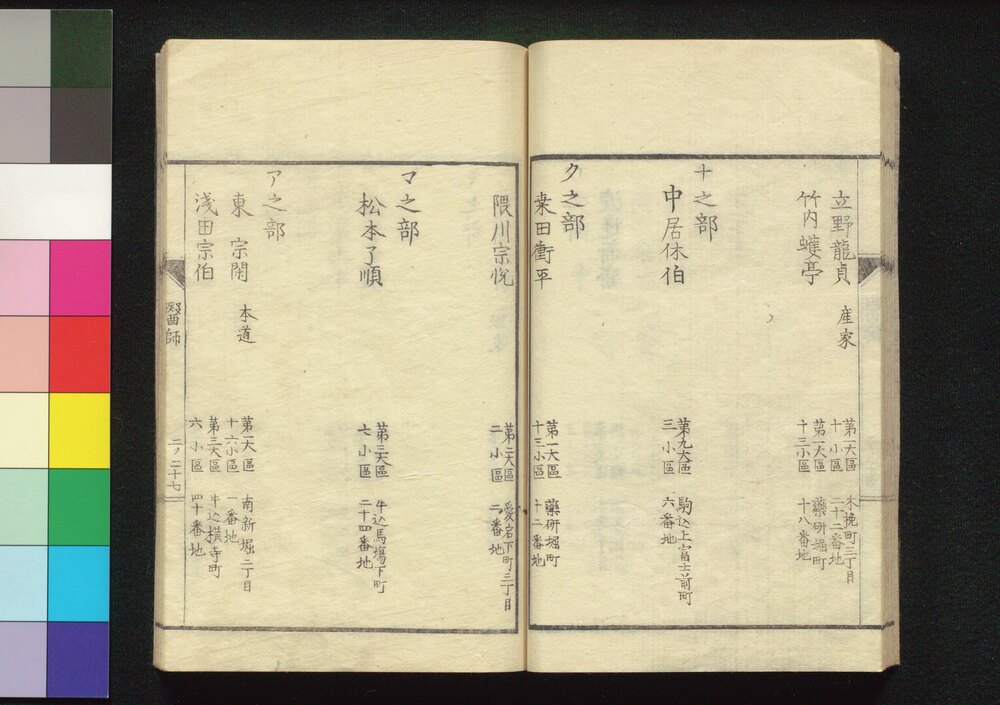 立野龍貞 産家 第一大區十小區 木挽町三丁目二十二番地
竹内蠖亭 第一大區十三小區 藥研堀町十八番地
ナ之部
中居休伯 第九大區三小區 駒込上富士前町六番地
ク之部
桒田衝平 第一大區十三小區 藥研堀町十二番地
隈川宗悦 第二大區二小區 愛宕下町三丁目二番地
マ之部
松本了順 第三大區七小區 牛込馬場下町二十四番地
ア之部
東宗閑 本道 第一大區十六小區 南新堀二丁目一番地
淺田宗伯 第三大區六小區 牛込横寺町四十番地
醫師 二ノ二十七